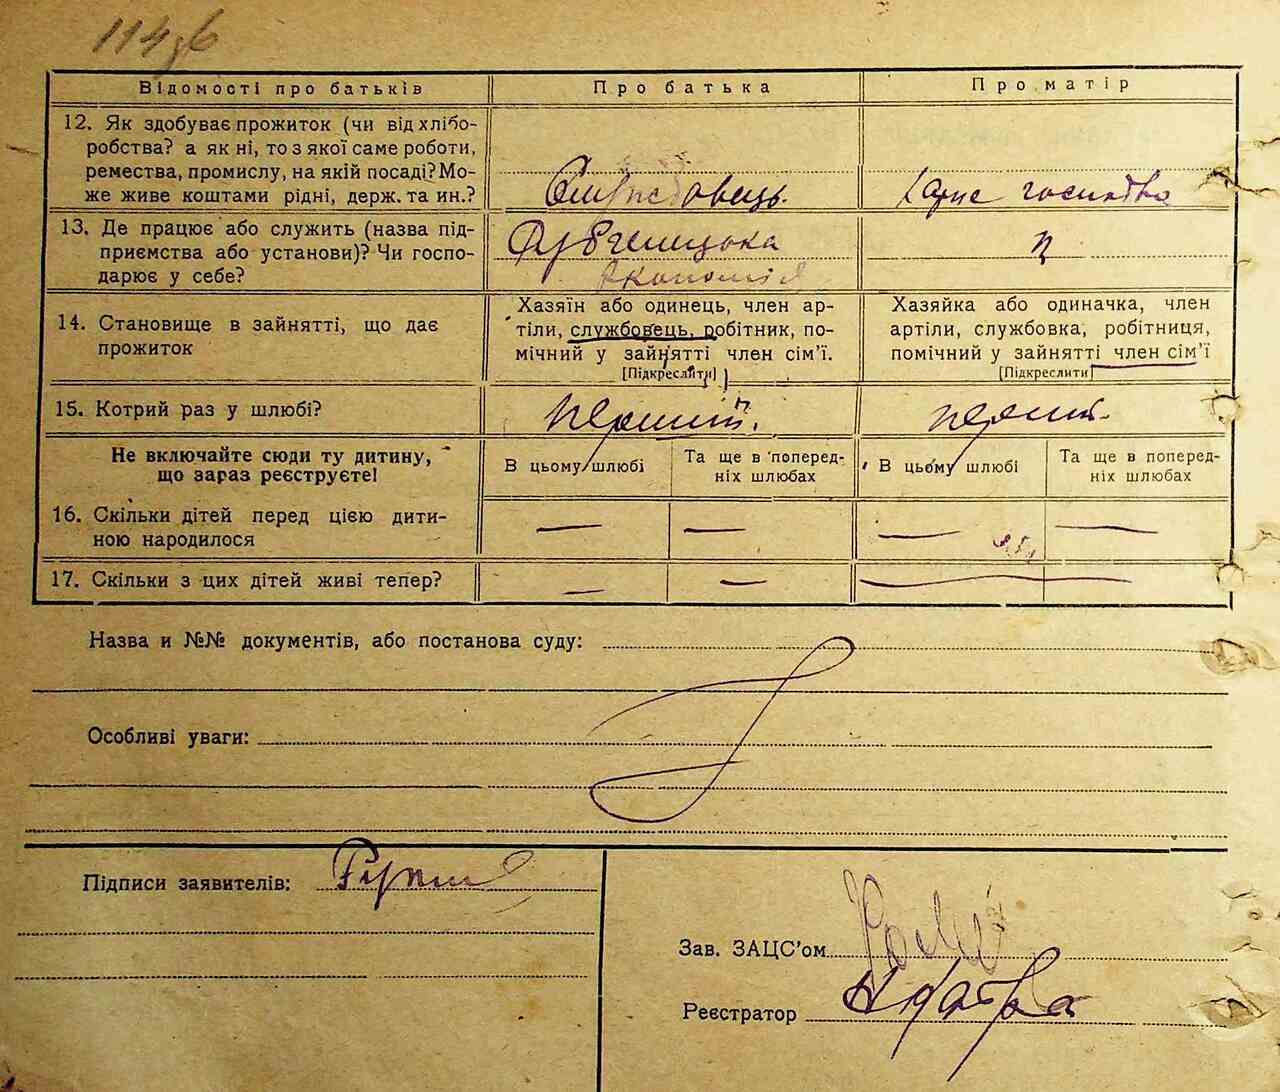 114
Відомості про батьків
Про батька
Про матір
12. Як здобуває прожиток (чи від хлібо-
робства? а як ні, то з якої саме роботи,
ремества, промислу, на якій посаді? Мо-
же живе коштами рідні, держ. та ин.?
13. Де працює або служить (назва під-
приємства або установи)? Чи госпо-
дарює у себе?
економія
14. Становище в зайнятті, що дає
прожиток
Хазяїн або одинець, член ар-
тіли, службовець, робітник, по-
мічний у зайнятті член сім'ї.
[Підкреслити]
Хазяйка або одиначка, член
артіли, службовка, робітниця,
помічний у зайнятті член сім'ї
[Підкреслити]
15. Котрий раз у шлюбі?
перший.
перший.
Не включайте сюди ту дитину,
що зараз реєструєте!
В цьому шлюбі
Та ще в поперед-
ніх шлюбах
В цьому шлюбі
Та ще в поперед-
ніх шлюбах
16. Скільки дітей перед цією дити-
ною народилося
— — — —
17. Скільки з цих дітей живі тепер?
— — —
Назва и №№ документів, або постанова суду:
Особливі уваги:
Підписи заявителів:
Зав. ЗАЦС'ом
Реєстратор